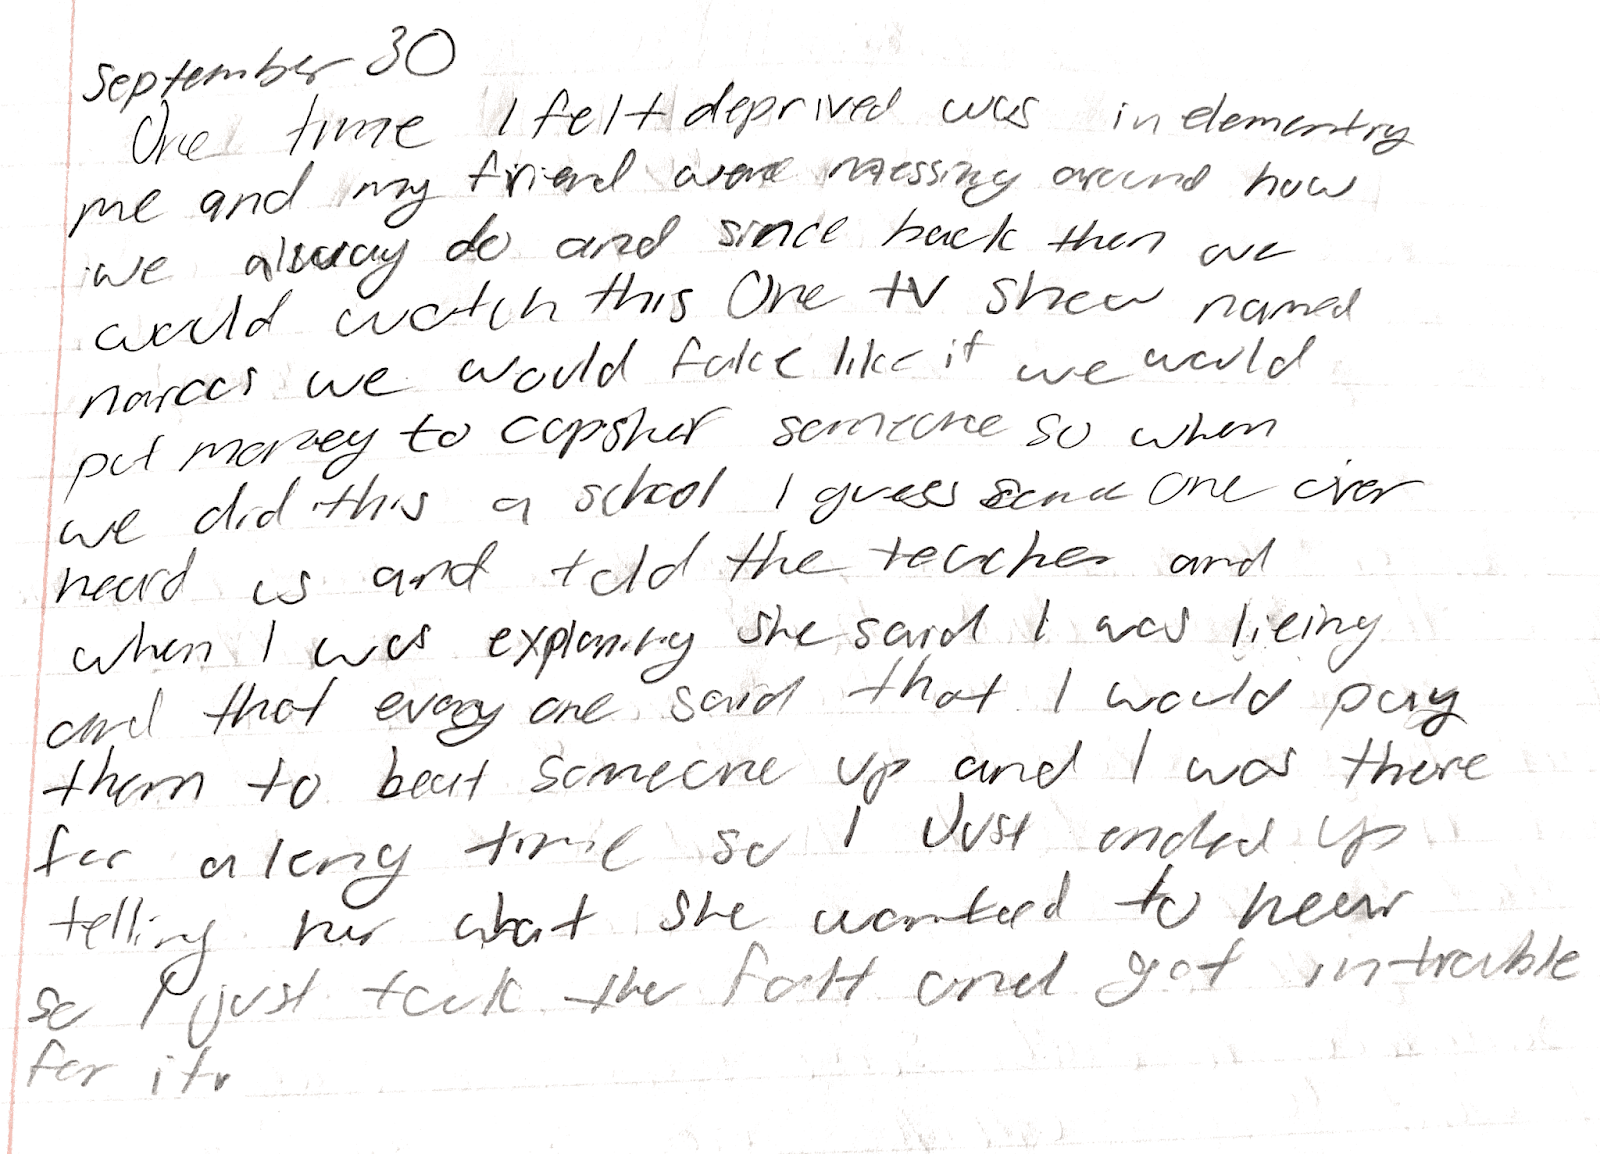 September 30
One time I felt deprived was in elementry
me and my friend were messing around how
we alway do and since back then we
would watch this One tv show named
narcos we would fake like if we would
put money to someone so when
we did this a school I guess some one over
heard us and told the teacher and
when I was explaning she said I was lieing
and that every one said that I would pay
them to beat someone up and I was there
for a long time so I Just ended up
telling her what she wanted to hear
so I just took the falt and got in trouble
for it.